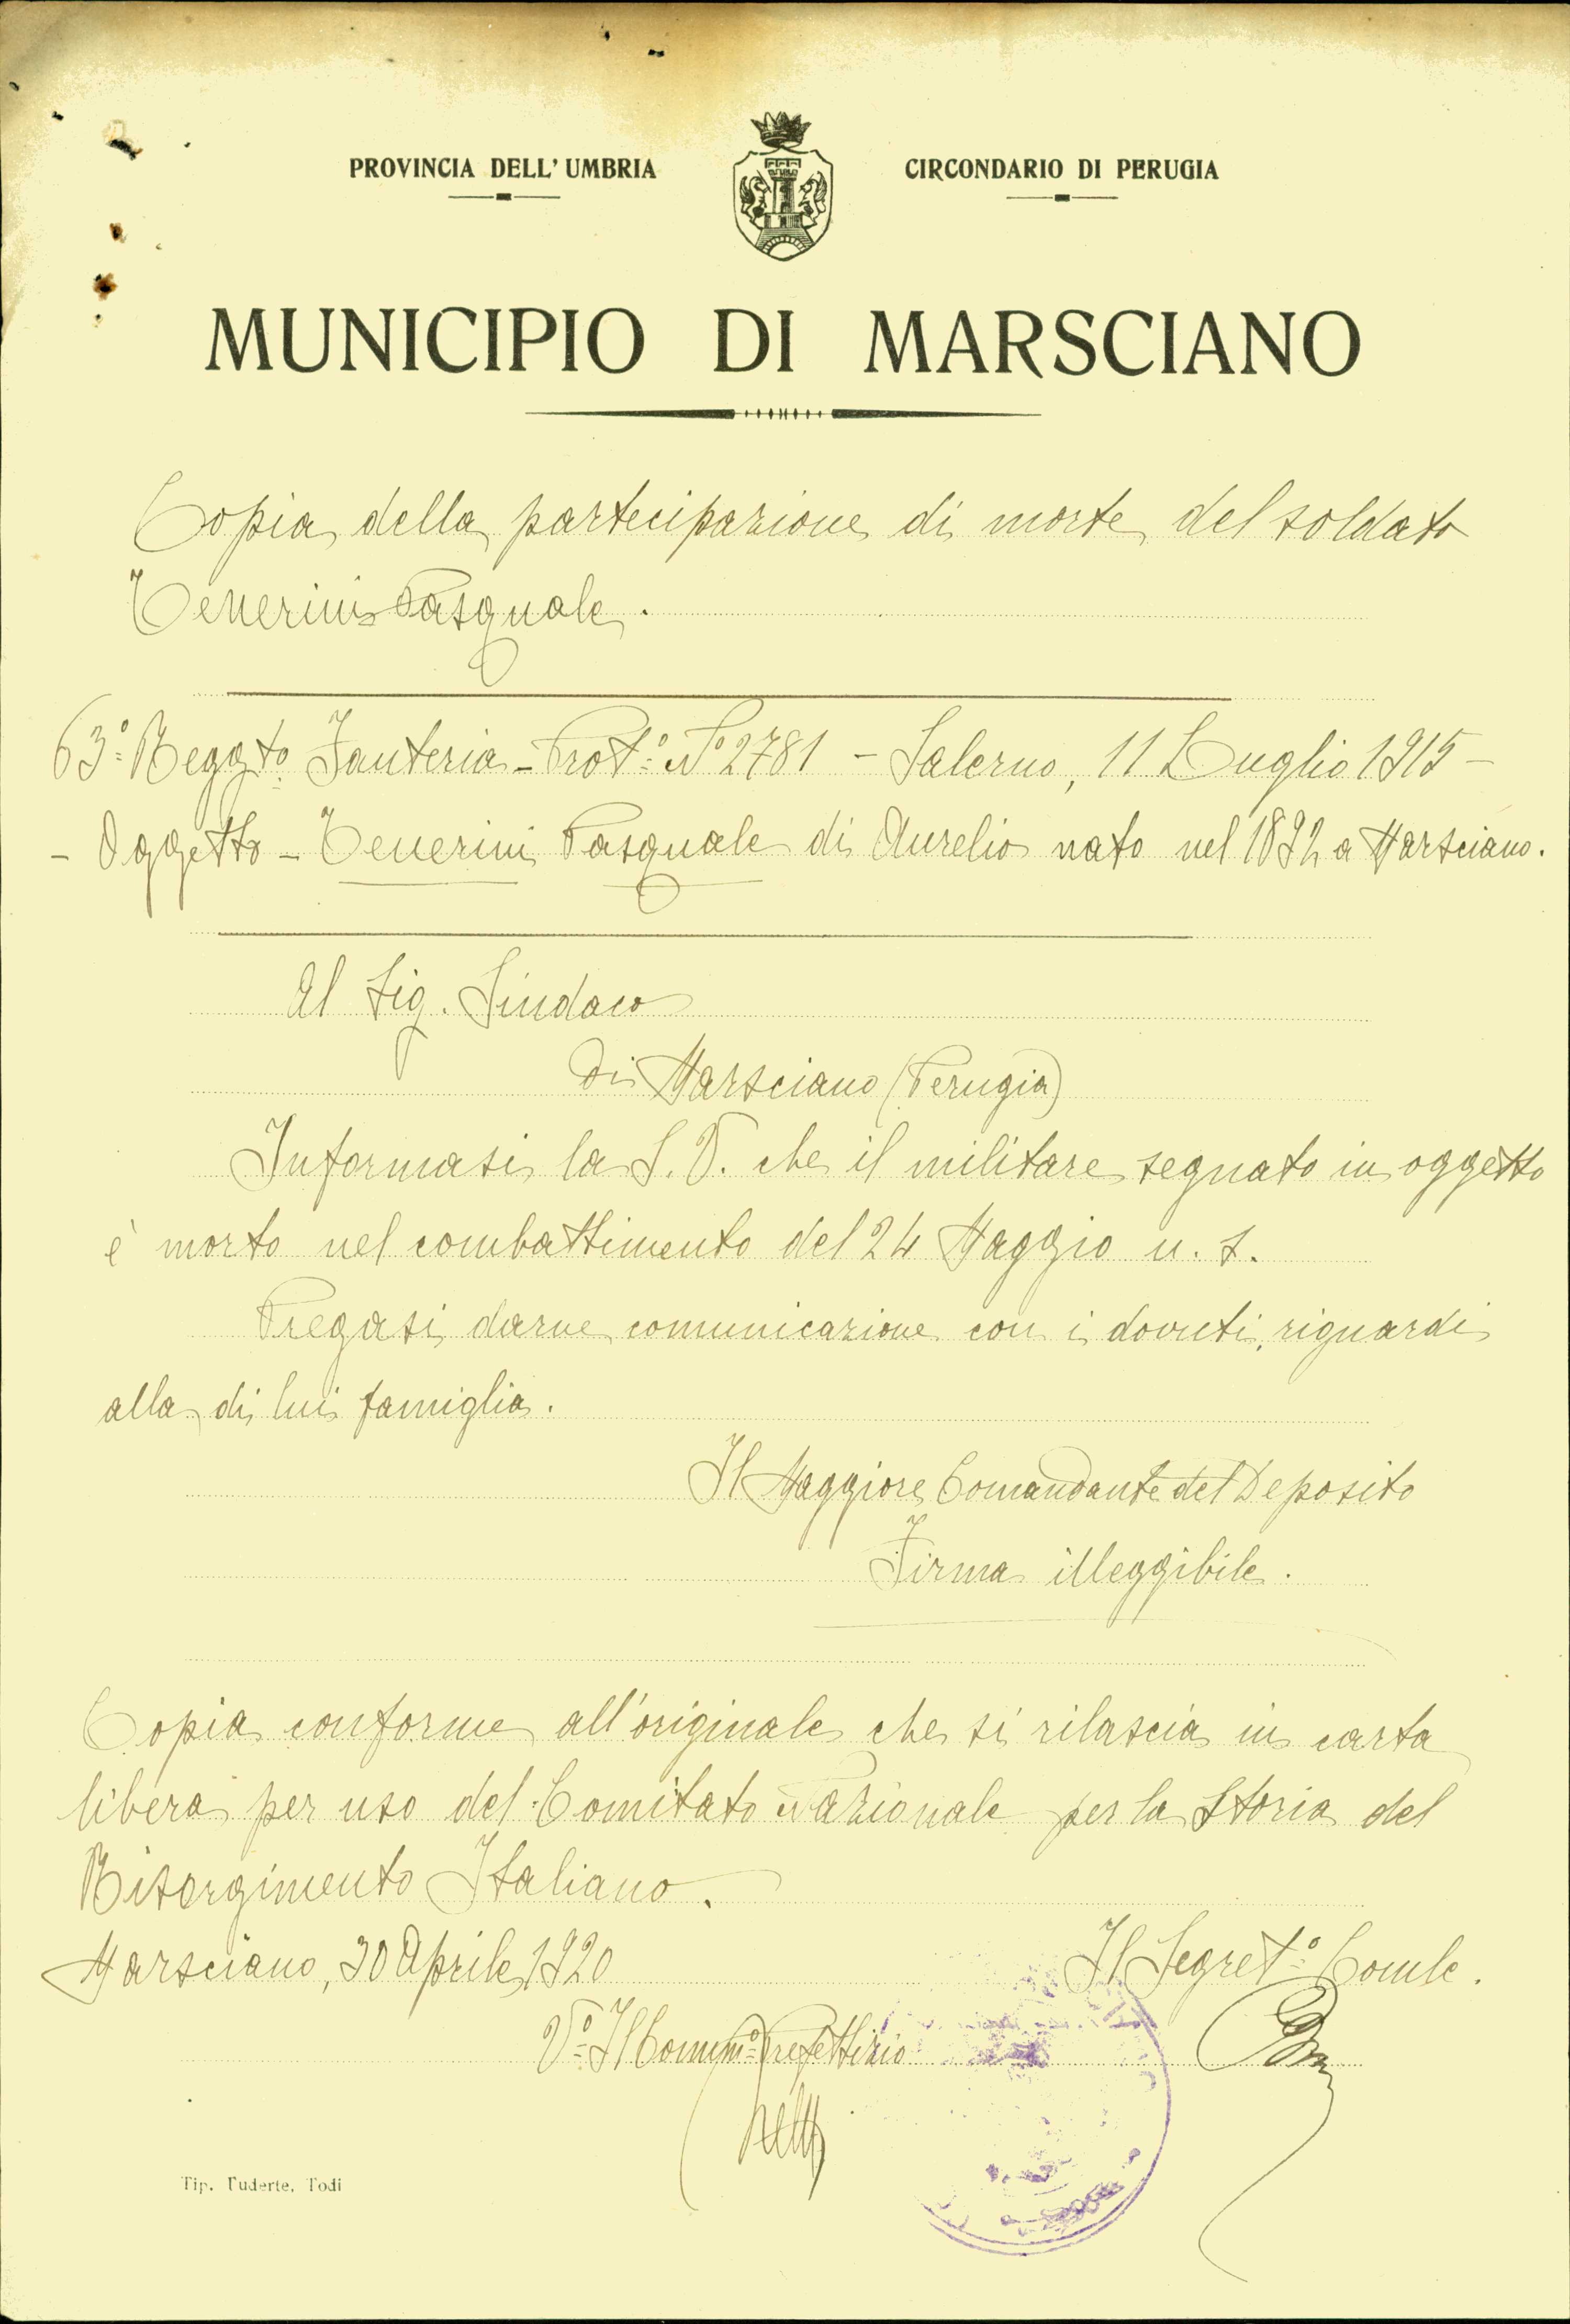 PROVINCIA DELL' UMBRIA
CIRCONDARIO DI PERUGIA
MUNICIPIO DI MARSCIANO
Copia della partecipazione di morte del soldato
Tenerini Pasquale.
63º Reggto Fanteria - Protº Nº 2781 - Salerno, 11 Luglio 1915 -
- Oggetto - Tenerini Pasquale di Aurelio nato nel 1892 a Marsciano.
Al Sig. Sindaco
di Marsciano (Perugia)
Informasi la S. V. che il militare segnato in oggetto
è morto nel combattimento del 24 Maggio u. s.
Pregasi darne comunicazione con i dovuti riguardi
alla di lui famiglia.
Il Maggiore Comandante del Deposito
Firma illeggibile.
Copia conforme all'originale che si rilascia in carta
libera per uso del Comitato Nazionale per la Storia del
Risorgimento Italiano.
Marsciano, 30 Aprile 1920
Il Segretº Comle.
Vº Il Commº Prefettizio
Tip. Tuderte, Todi